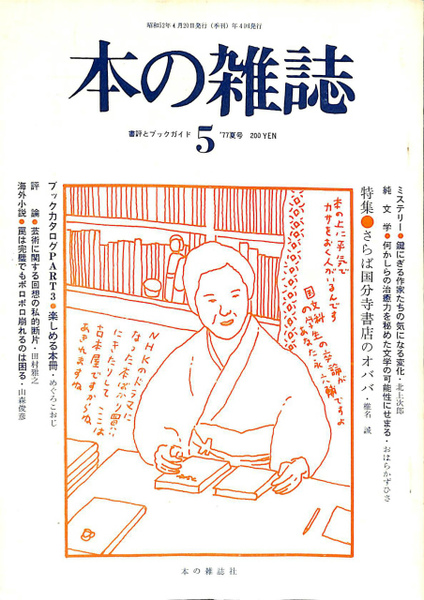 昭和52年4月20日発行(季刊)年4回発行
本の雑誌
書評とブックガイド 5 '77夏号 200YEN
ミステリー●鍵にぎる作家たちの気になる変化・北上次郎
純文学●何かしらの治癒力を秘めた文学の可能性にせまる・おはらかずひさ
特集●さらば国分寺書店のオババ・椎名 誠
本の上に平気で
カサをおく人がいるんです
国文科生の卒論が
国文学者なんですよ
NHKのドラマに
なった本ばかり買いに
にきたりして ここは
古本屋ですからね
あきれますね
ブックカタログPART3●楽しめる本冊・めぐろこおじ
評論●芸術に関する回想の私的断片・田村雅之
海外小説●罠は完璧でもボロボロ崩れるのは困る・山森俊彦
本の雑誌社